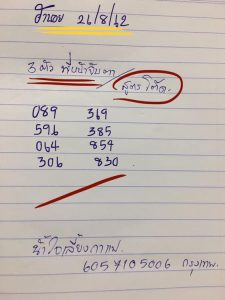 ฮานอย 26/8/62
3 ตัว ที่น่าจับตา / สูตร โต๊ด.
089 319
596 385
064 854
306 830
น้ำใจเลี้ยงกาแฟ.
6057105006 กรุงเทพ.